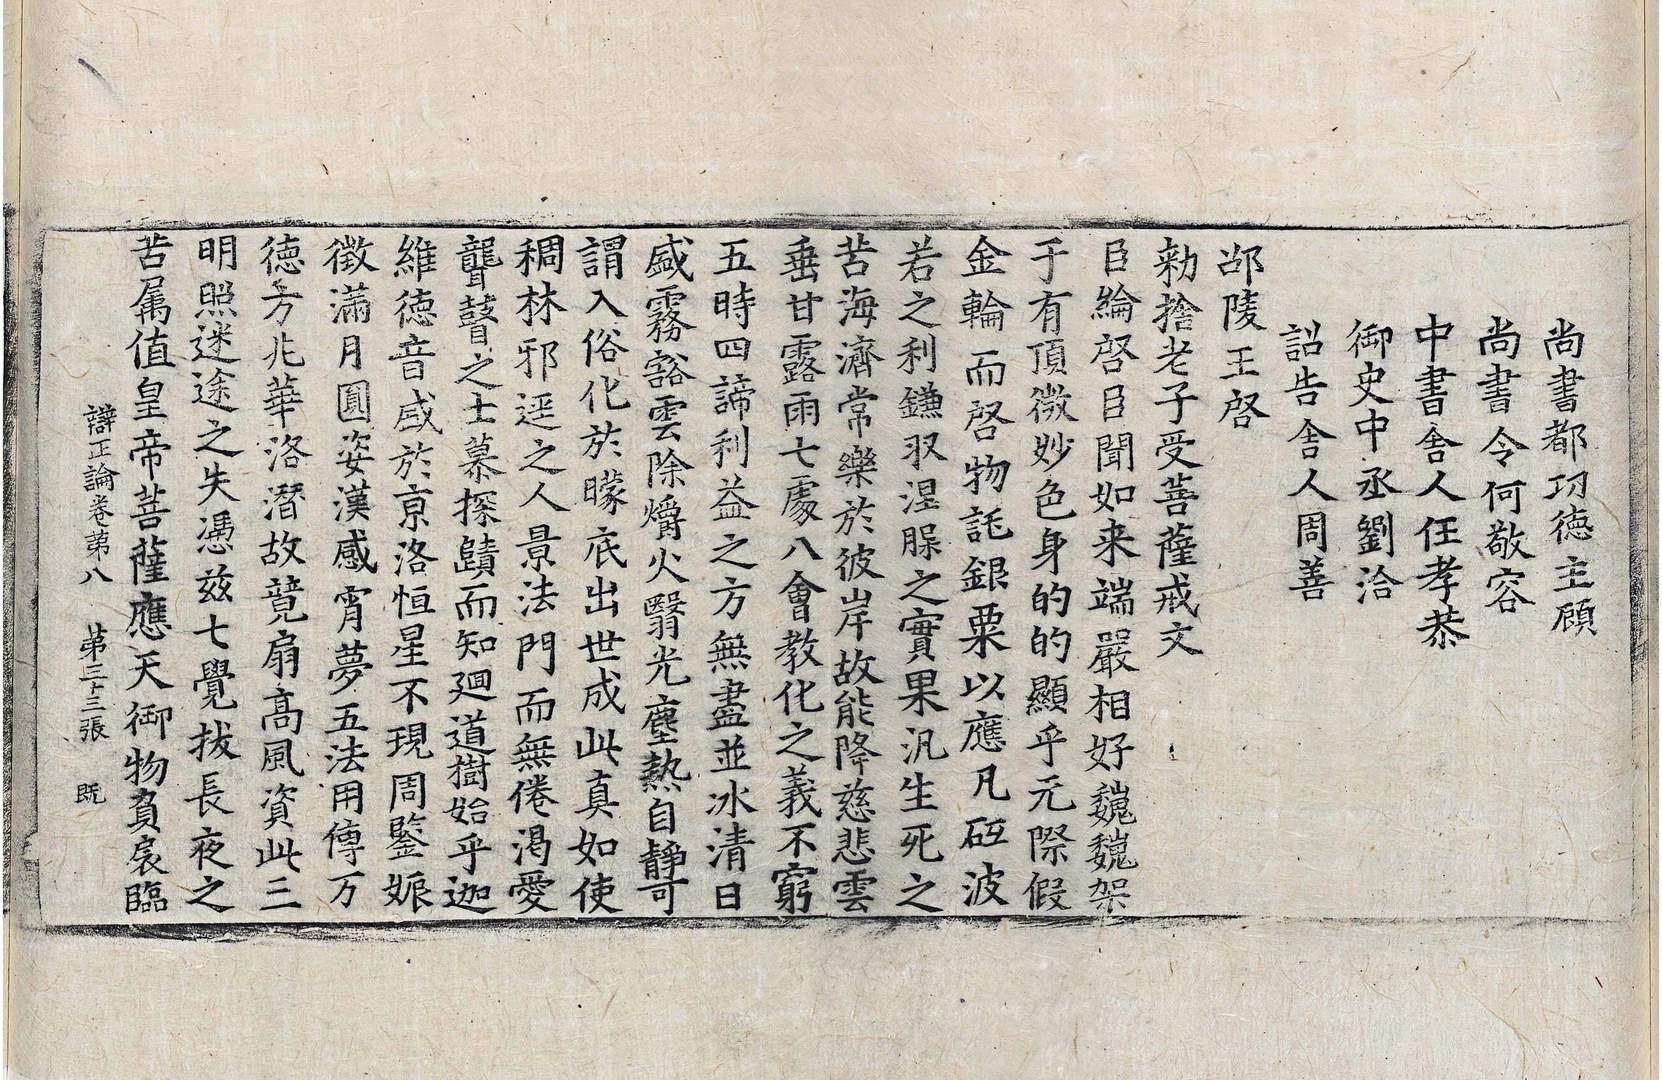 尚書都功德主顧
尚書令何敬容
中書舍人任孝恭
御史中丞劉洽
詔告舍人周善
邵陵王啓
勑捨老子受菩薩戒文
臣綸啓臣聞如来端嚴相好巍巍架
于有頂微妙色身的的顯乎元際假
金輪而啓物託銀粟以應凡砥波
若之利鎌收涅槃之實果汎生死之
苦海濟常樂於彼岸故能降慈悲雲
垂甘露雨七處八會教化之義不窮
五時四諦利益之方無盡並冰清日
盛霧豁雲除爝火翳光塵熱自靜可
謂入俗化於曚底出世成此真如使
稠林邪逕之人景法門而無倦渴愛
聾瞽之士慕探賾而知迴道樹始乎迦
維德音盛於京洛恒星不現周鑒娠
徵滿月圓姿漢感宵夢五法用傳万
德方兆華洛潛故競扇高風資此三
明照迷途之失憑兹七覺拔長夜之
苦属值皇帝菩薩應天御物負扆臨
辯正論卷第八 第三十三張 既